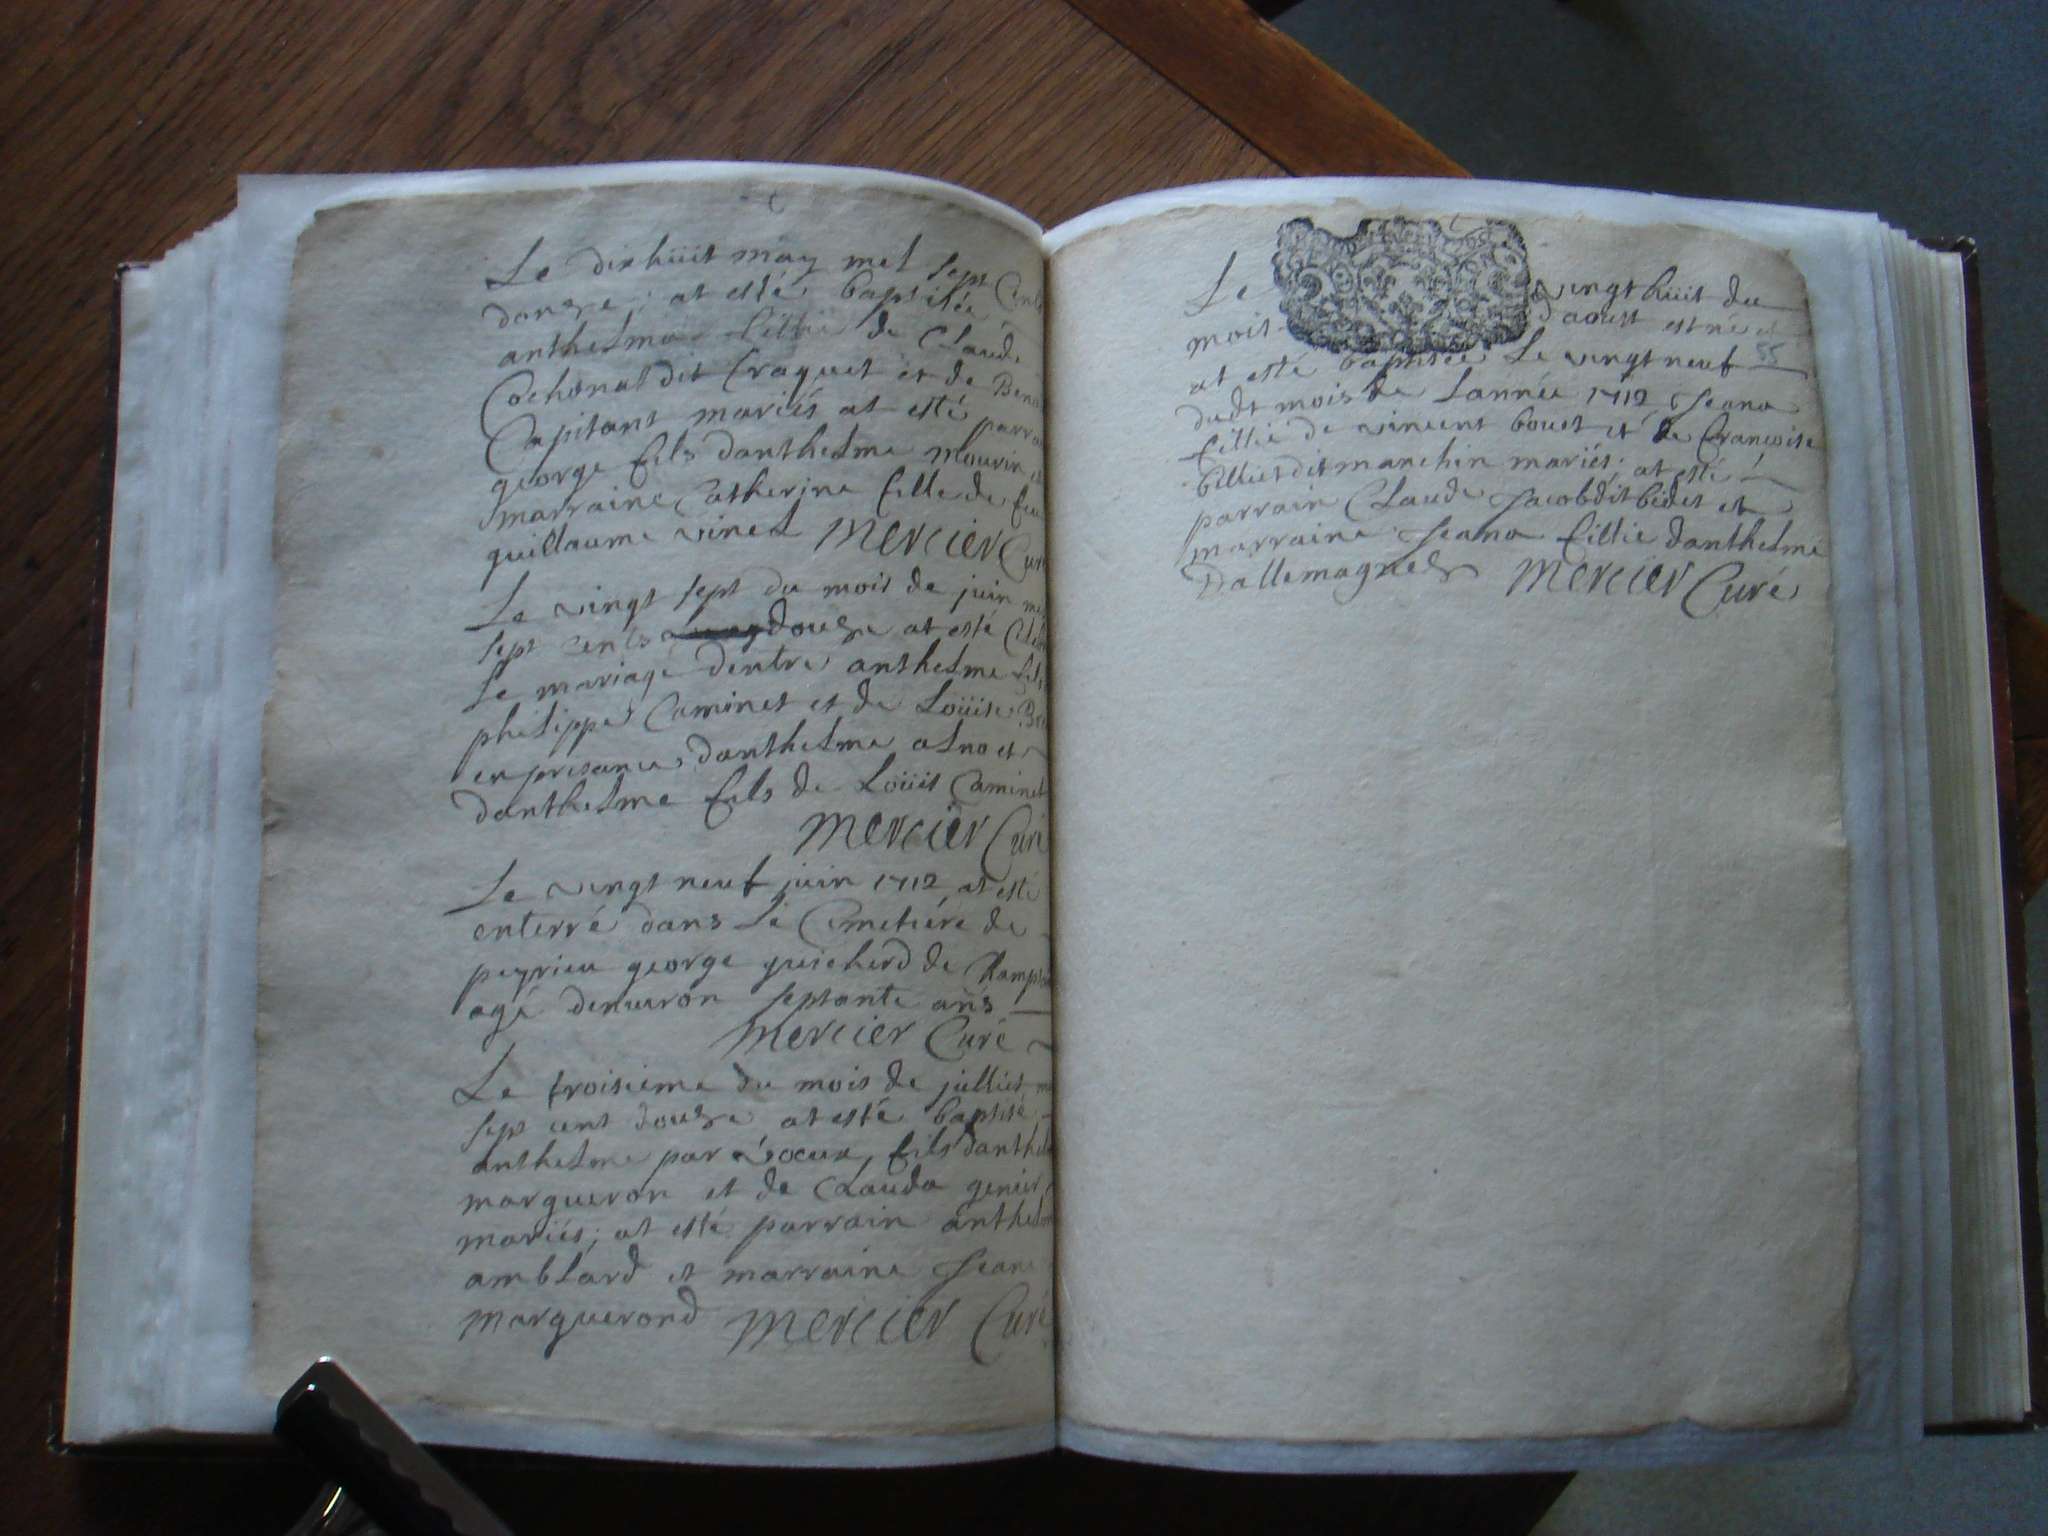 Le dixhüit may mil sept Cents
douze; at esté baptisée
anthelma fillie de Claude
Cochonat dit Craquet et de
Capitant mariés at esté
george fils danthelme mourin et
marraine Catherine fille de feu
guillaume vinet Mercier Curé
Le vingt sept du mois de juin
sept cents douze at esté
Le mariage dentre anthelme fils
philippe Caminet et de Loüise
en presance danthelme alno et
danthelme fils de Loüis Caminet
Mercier Curé
Le vingt neuf juin 1712 at esté
enterré dans Le Cimetiére de
peyrieu george guicherd de
agé denviron septante ans
Mercier Curé
Le troisieme du mois de jullict
sept cent douze at esté baptisé
anthelme par fils
margueron et de Clauda
mariés; at esté parrain
amblard et marraine Jeane
marguerond Mercier Curé
Le vingt hüit du
mois daoust est né et
at esté baptisée Le vingt neuf 55
dudt mois de Lannée 1712 Jeana
fillie de vincent bouet et de francoise
billiet dit manchin mariés; at esté
parrain Claude Jacob dit bidet et
marraine Jeana fillie danthelme
Dallemagne Mercier Curé